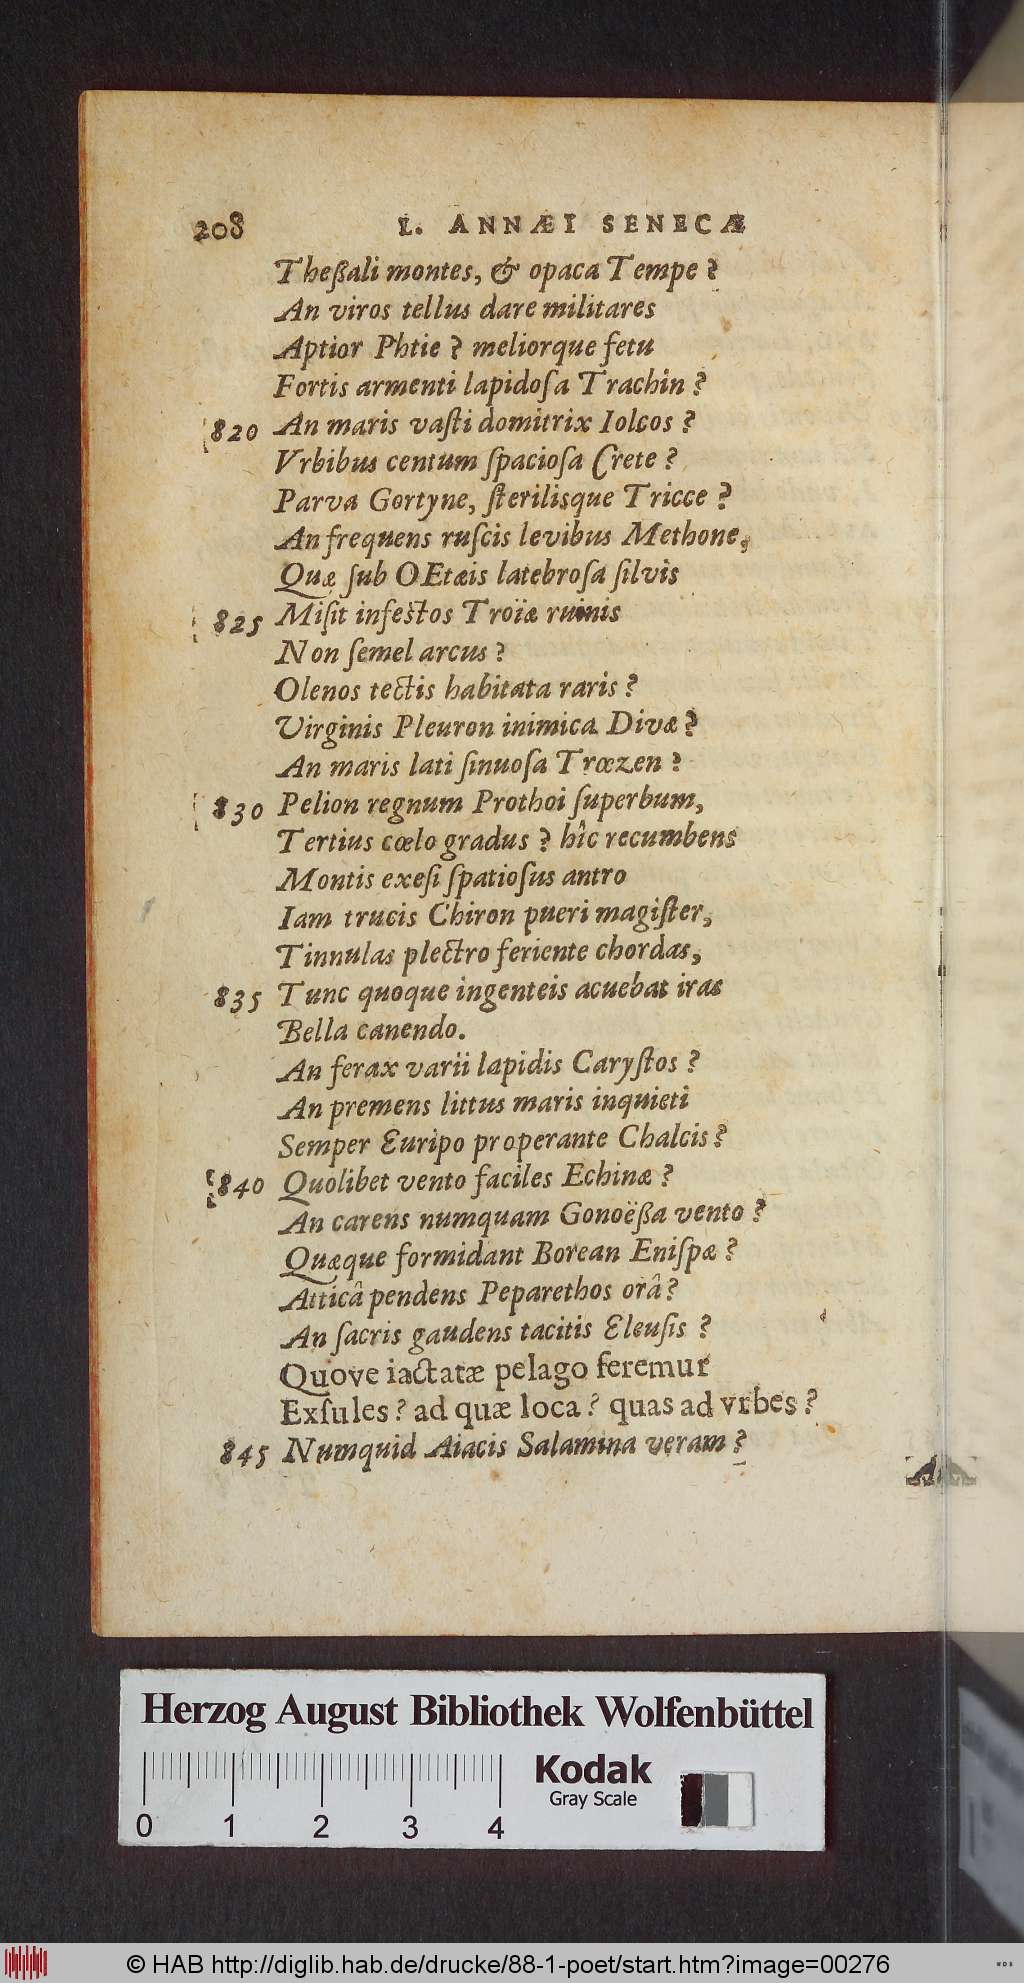 208 L. ANNÆI SENECÆ
Theßali montes, & opaca Tempe?
An viros tellus dare militares
Aptior Phtie? meliorque fetu
Fortis armenti lapidoſa Trachin?
820 An maris vaſti domitrix Iolcos?
Vrbibus centum ſpacioſa Crete?
Parva Gortyne, ſterilisque Tricce?
An frequens ruſcis levibus Methone,
Quæ ſub OEtæis latebroſa ſilvis
825 Miſit infeſtos Troïæ ruinis
Non ſemel arcus?
Olenos tectis habitata raris?
Virginis Pleuron inimica Divæ?
An maris lati ſinuoſa Trœzen?
830 Pelion regnum Prothoi ſuperbum,
Tertius cœlo gradus? hîc recumbens
Montis exeſi ſpatioſus antro
Iam trucis Chiron pueri magiſter,
Tinnulas plectro feriente chordas,
835 Tunc quoque ingenteis acuebat iras
Bella canendo.
An ferax varii lapidis Caryſtos?
An premens littus maris inquieti
Semper Euripo properante Chalcis?
840 Quolibet vento faciles Echinæ?
An carens numquam Gonoëßa vento?
Quæque formidant Borean Eniſpæ?
Atticâ pendens Peparethos orâ?
An ſacris gaudens tacitis Eleuſis?
Quove iactatæ pelago feremur
Exſules? ad quæ loca? quas ad vrbes?
845 Numquid Aiacis Salamina veram?
Herzog August Bibliothek Wolfenbüttel
Kodak
Gray Scale
0 1 2 3 4
© HAB http://diglib.hab.de/drucke/88-1-poet/start.htm?image=00276